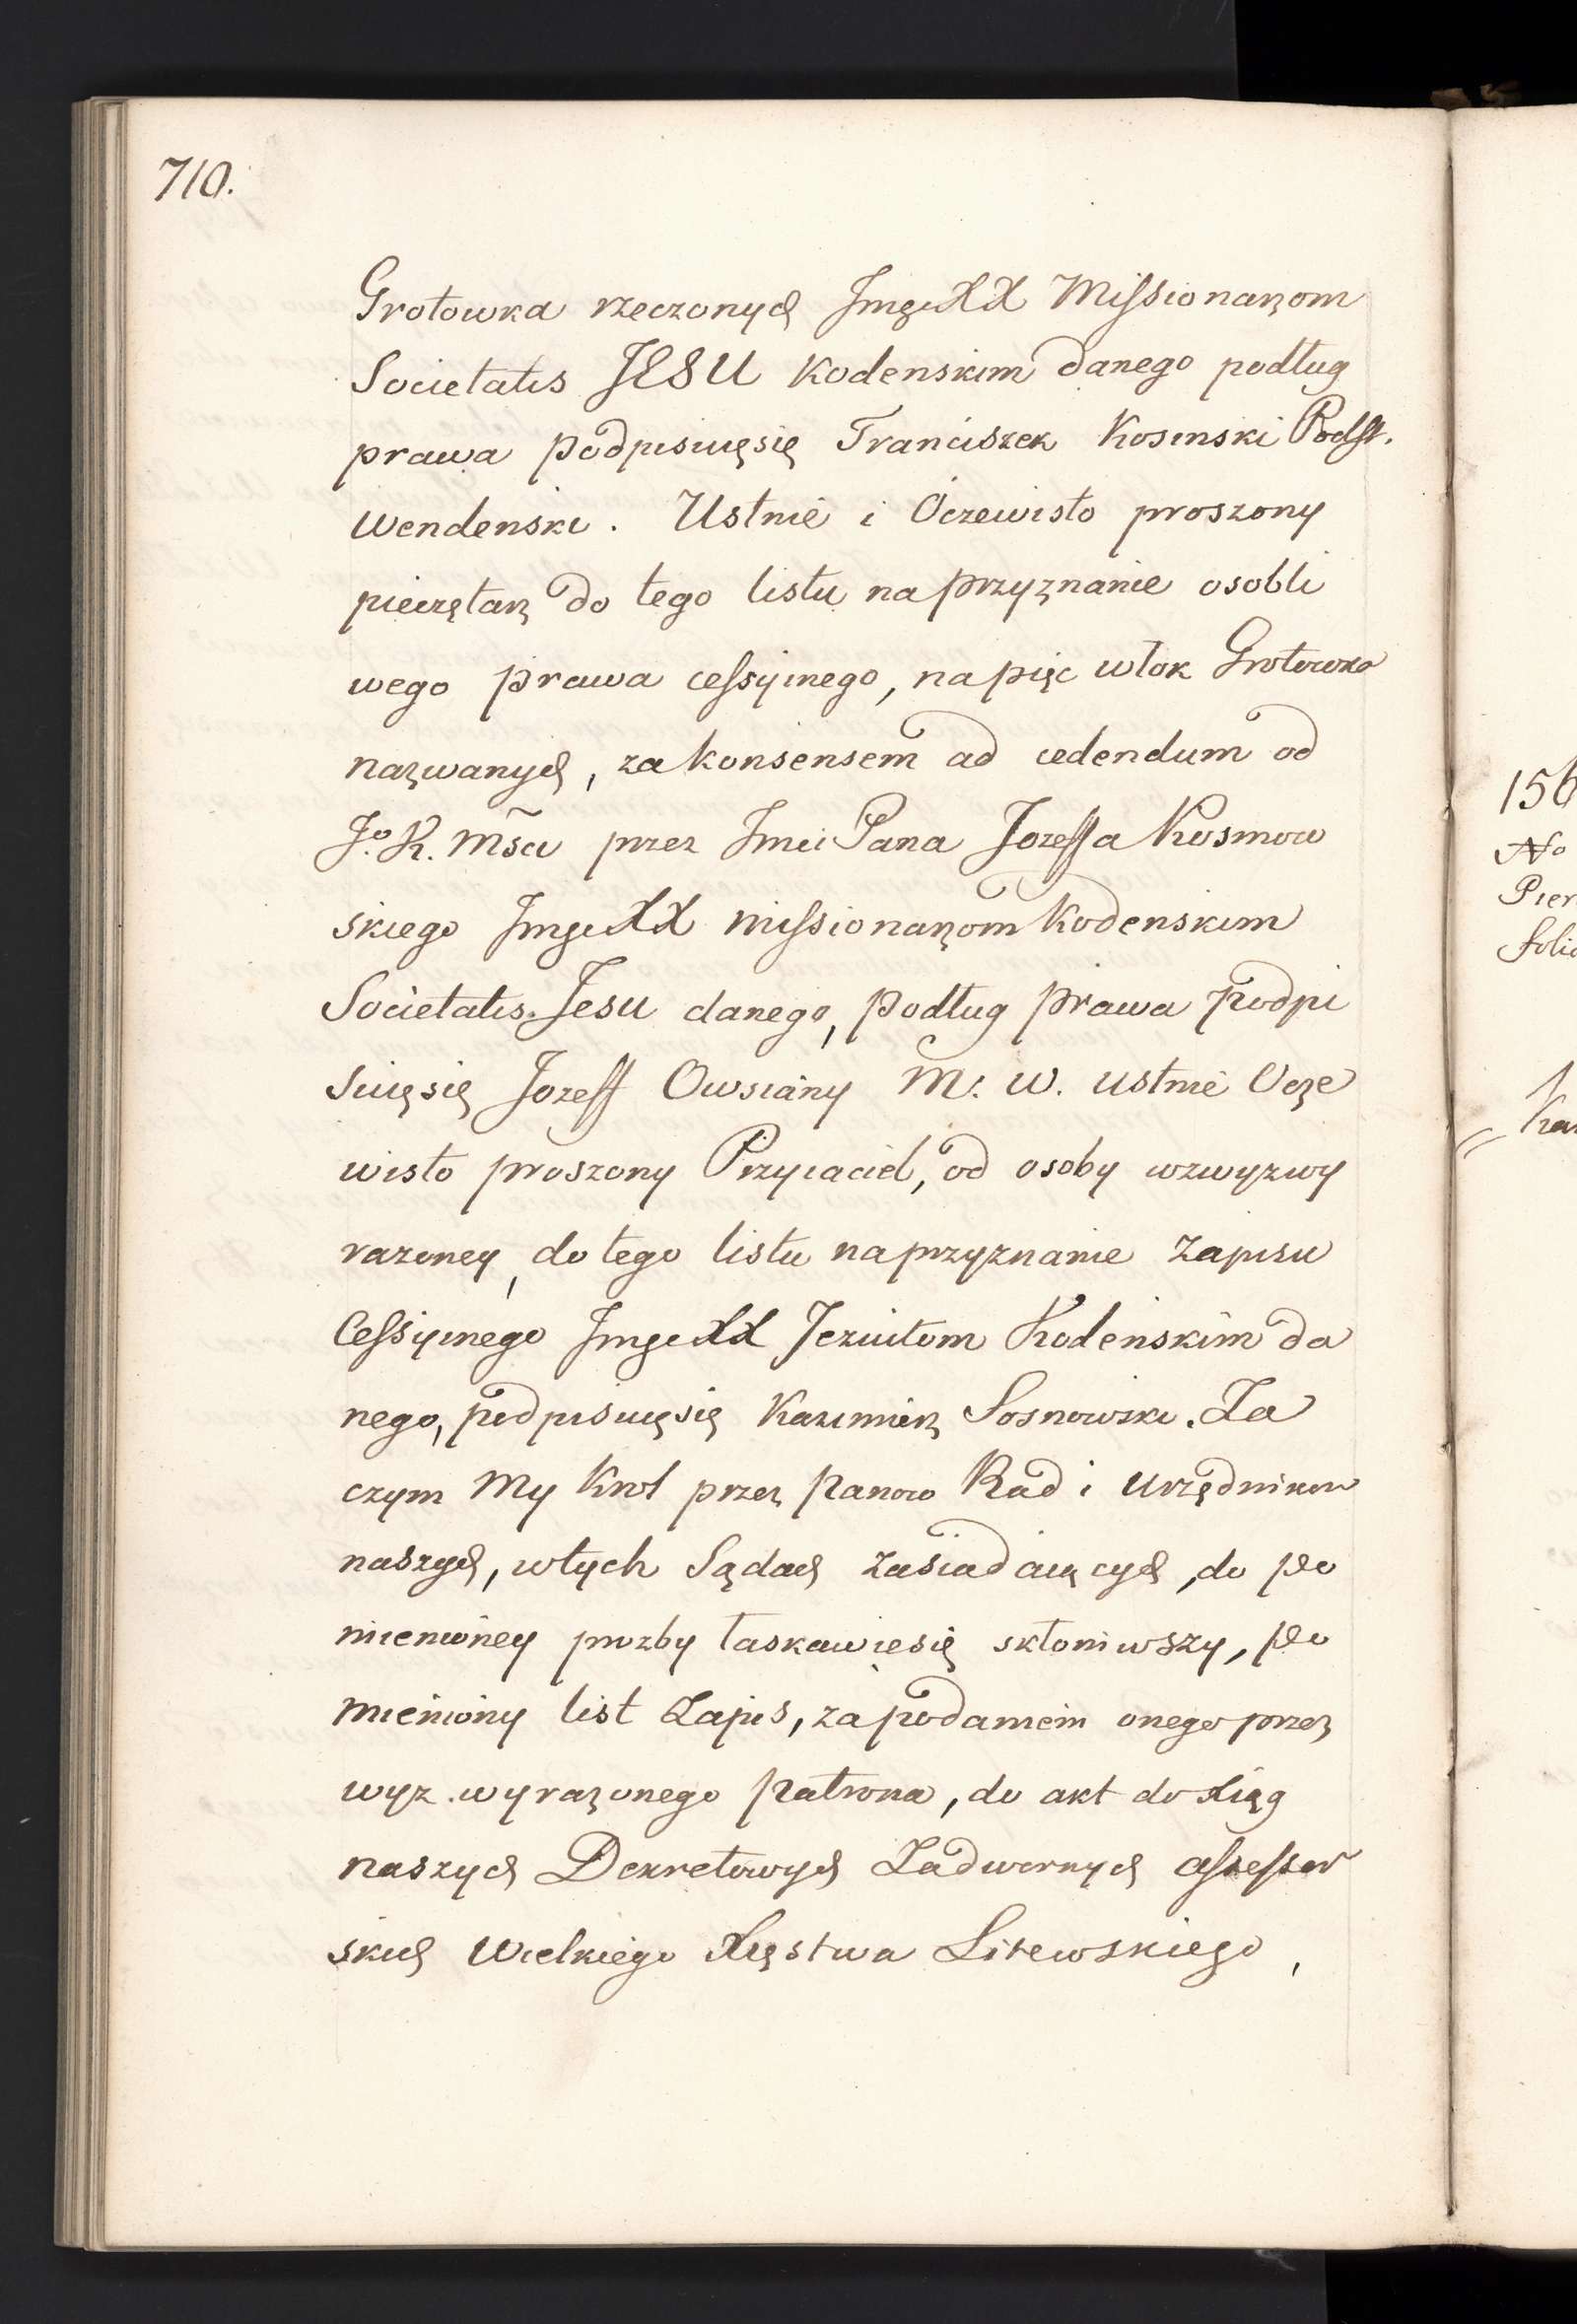 710.
Grotowka rzeczonych JmgciXX Missionarzom
Societatis JESU Kodenskim danego podług
prawa podpisuięsię Franciszek Kosinski Podst.
Wendenski. Ustnie i Oczewisto proszony
pieczętarz do tego listu na przyznanie osobli
wego prawa cessyinego, na pięc włok Grotowka
nazwanych, za konsensem ad cedendum od
Jo. K. Msci przez Jmci Pana Jozeffa Kosmow
skiego JmgciXX missionarzom Kodenskim
Societatis Jesu danego, podług prawa podpi
suięsię Jozeff Owsiany M. W. ustnie Ocze
wisto proszony Przyiaciel, od osoby wzwyzwy
razoney, do tego listu na przyznanie Zapisu
Cessyinego JmgciXX Jezuitom Kodenskim da
nego, podpisuięsię Kazimierz Sosnowski. Za
czym My Krol przez Panow Rad i Urzędnikow
naszych, wtych Sądach zasiadaiących, do po
mienioney prozby łaskawiesię skłoniwszy, po
mieniony list Zapis, za podaniem onego przez
wyz wyrazonego patrona, do akt do Xiąg
naszych Dekretowych Zadwornych assessor
skich Wielkiego Xięstwa Litewskiego,
156
No
Pier
folio
Kaz